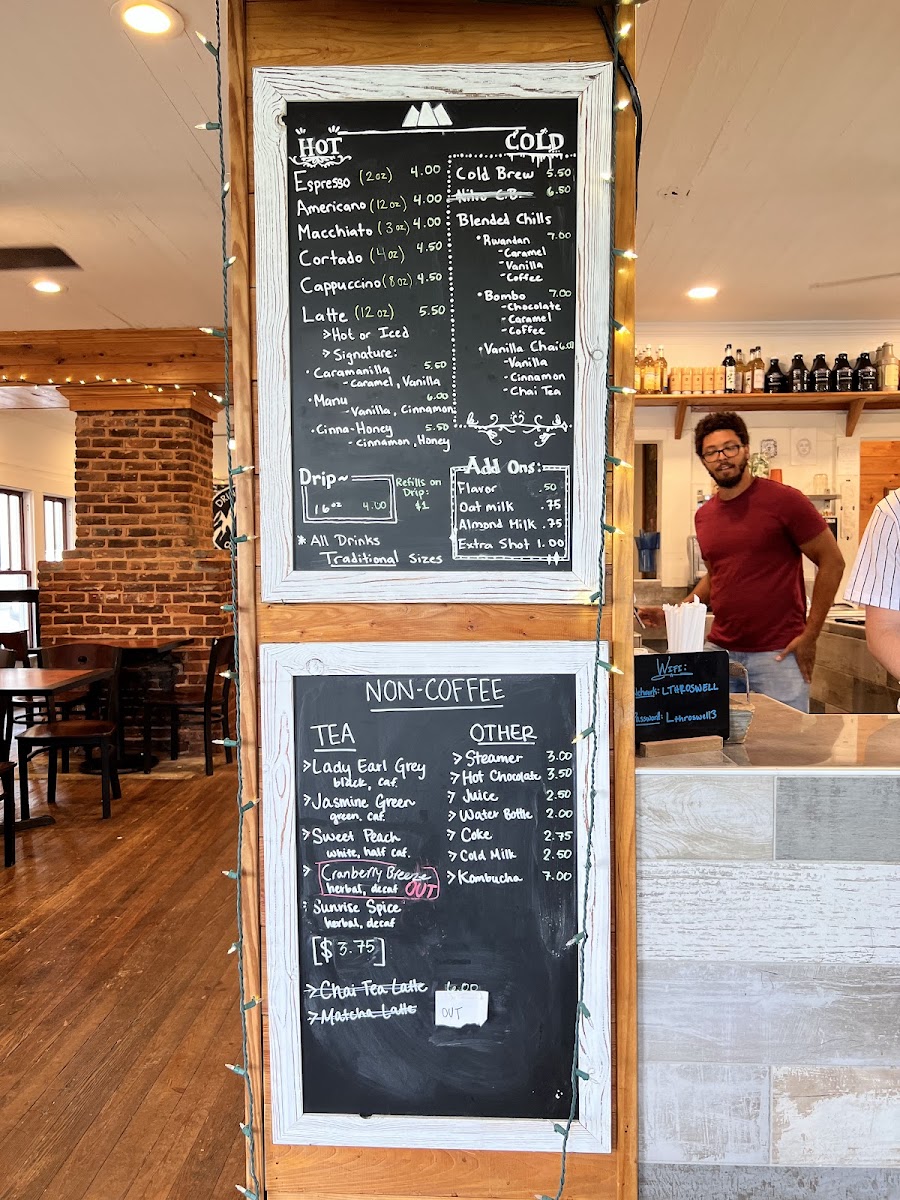 HOT
Espresso (2oz) 4.00
Americano (12oz) 4.00
Macchiato (3oz) 4.00
Cortado (4oz) 4.50
Cappuccino (8oz) 4.50
Latte (12oz) 5.50
>Hot or Iced
>Signature:
·Caramanilla 5.50
-Caramel, Vanilla
·Manu 6.00
-Vanilla, Cinnamon
·Cinna-Honey 5.50
-Cinnamon, Honey
Drip~
16oz 4.00
Refills on
Drip:
$1
* All Drinks
Traditional Sizes
COLD
Cold Brew 5.50
Nitro C.B. 6.50
Blended Chills
·Rwandan 7.00
-Caramel
-Vanilla
-Coffee
·Bombo 7.00
-Chocolate
-Caramel
-Coffee
·Vanilla Chai 6.00
-Vanilla
-Cinnamon
-Chai Tea
Add Ons:
Flavor .50
Oat milk .75
Almond Milk .75
Extra Shot 1.00
NON-COFFEE
TEA
>Lady Earl Grey
black, caf.
>Jasmine Green
green, caf.
>Sweet Peach
white, half caf.
> Cranberry Breeze
herbal, decaf OUT
Sunrise Spice
herbal, decaf
[$3.75]
>Chai Tea Latte 6.00
>Matcha Latte
OUT
OTHER
>Steamer 3.00
>Hot Chocolate 3.50
> Juice 2.50
> Water Bottle 2.00
> Coke 2.75
> Cold Milk 2.50
>Kombucha 7.00
Wifi:
Network: LTHROSWELL
Password: Lthroswell3